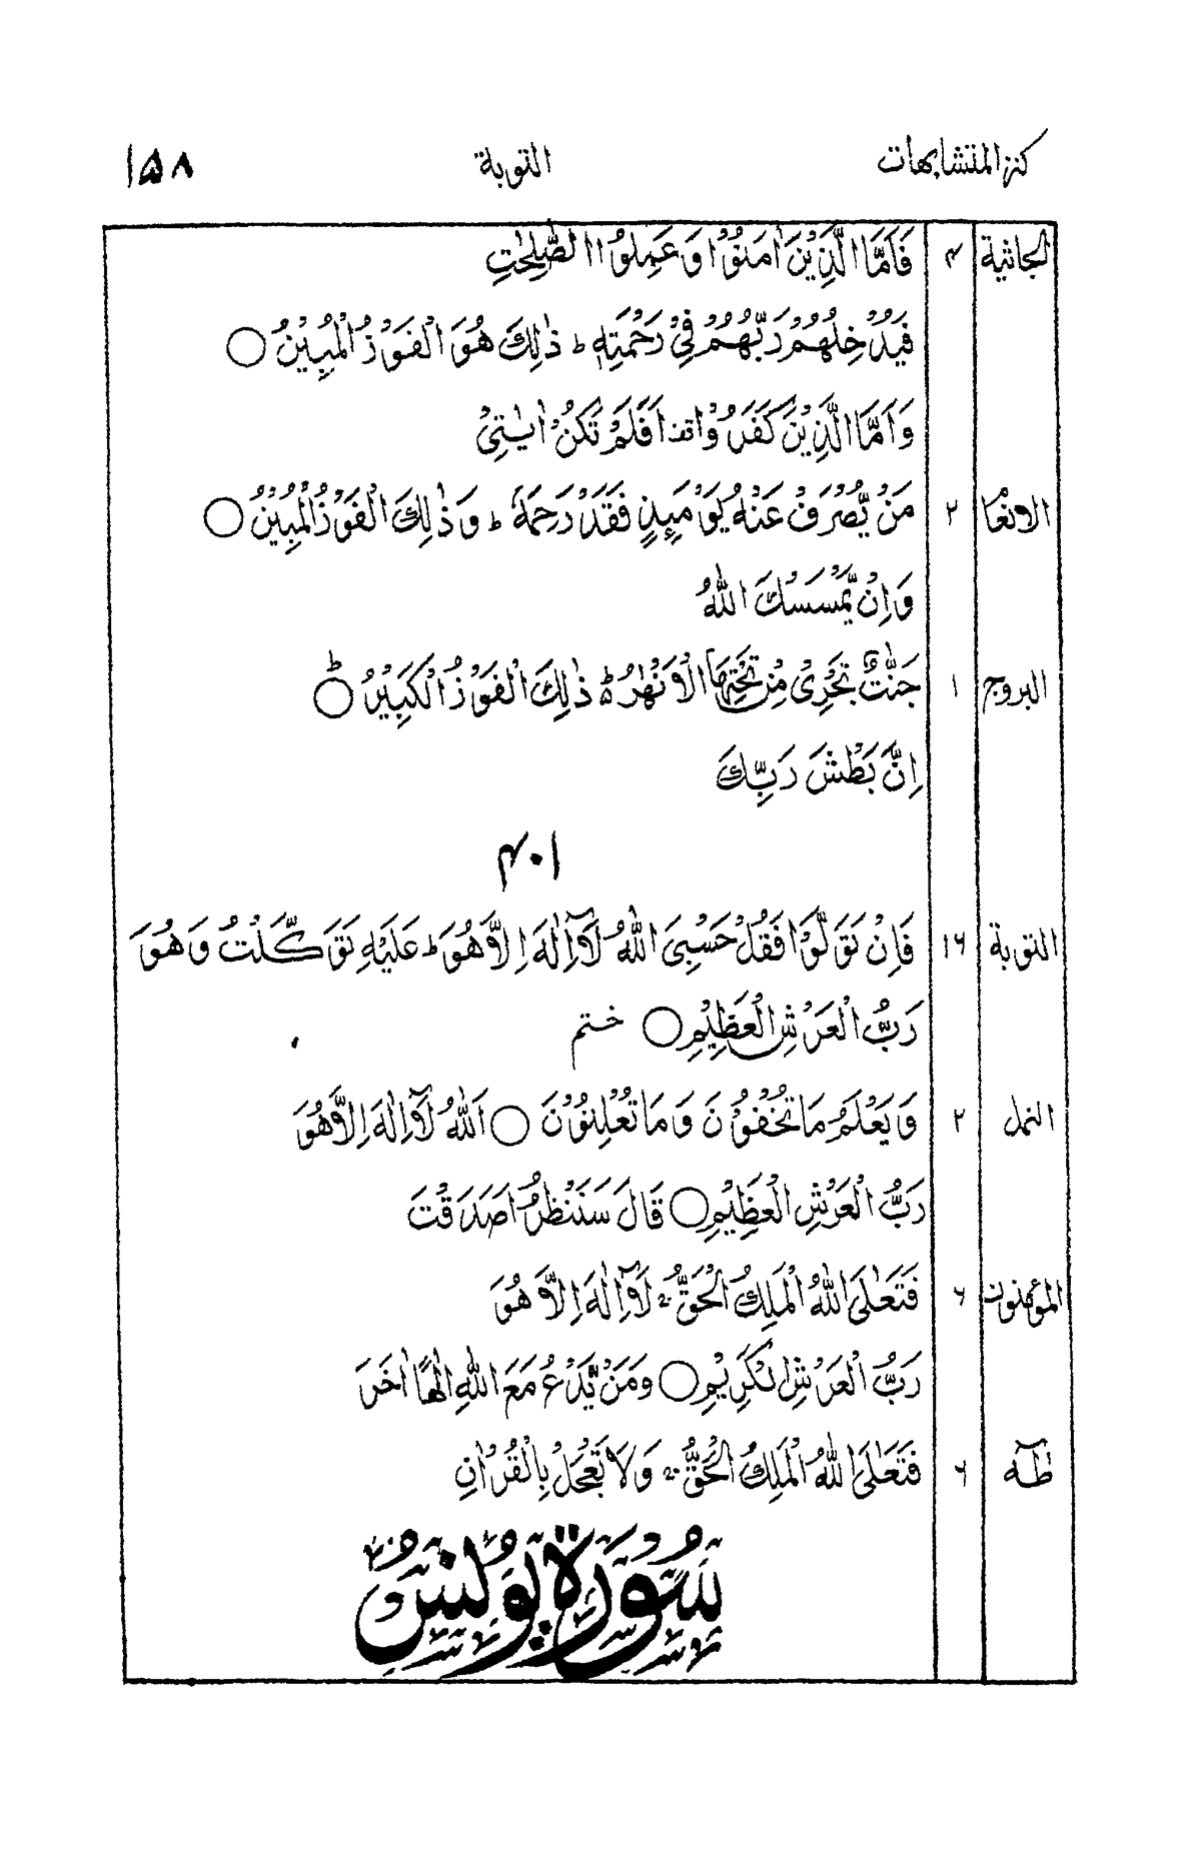 كنز المتشابهات التوبة ١٥٨
الجاثية ٤ فَاَمَّا الَّذِيْنَ اٰمَنُوْا وَعَمِلُوا الصّٰلِحٰتِ
فَيُدْخِلُهُمْ رَبُّهُمْ فِيْ رَحْمَتِهٖ ط ذٰلِكَ هُوَ الْفَوْزُ الْمُبِيْنُ ○
وَاَمَّا الَّذِيْنَ كَفَرُوْا قف اَفَلَمْ تَكُنْ اٰيٰتِيْ
الانعام ٢ مَنْ يُّصْرَفْ عَنْهُ يَوْمَئِذٍ فَقَدْ رَحِمَهٗ ط وَذٰلِكَ الْفَوْزُ الْمُبِيْنُ ○
وَاِنْ يَّمْسَسْكَ اللّٰهُ
البروج ١ جَنّٰتٌ تَجْرِيْ مِنْ تَحْتِهَا الْاَنْهٰرُ ط ذٰلِكَ الْفَوْزُ الْكَبِيْرُ ○ ط
اِنَّ بَطْشَ رَبِّكَ
٤٠١
التوبة ١٦ فَاِنْ تَوَلَّوْا فَقُلْ حَسْبِيَ اللّٰهُ لَآ اِلٰهَ اِلَّا هُوَ ط عَلَيْهِ تَوَكَّلْتُ وَهُوَ
رَبُّ الْعَرْشِ الْعَظِيْمِ ○ ختم
النمل ٢ وَيَعْلَمُ مَا تُخْفُوْنَ وَمَا تُعْلِنُوْنَ ○ اَللّٰهُ لَآ اِلٰهَ اِلَّا هُوَ
رَبُّ الْعَرْشِ الْعَظِيْمِ ○ قَالَ سَنَنْظُرُ اَصَدَقْتَ
المؤمنون ٦ فَتَعٰلَى اللّٰهُ الْمَلِكُ الْحَقُّ ج لَآ اِلٰهَ اِلَّا هُوَ
رَبُّ الْعَرْشِ الْكَرِيْمِ ○ وَمَنْ يَّدْعُ مَعَ اللّٰهِ اِلٰهًا اٰخَرَ
طٰهٰ ٦ فَتَعٰلَى اللّٰهُ الْمَلِكُ الْحَقُّ ج وَلَا تَعْجَلْ بِالْقُرْاٰنِ
سُوْرَةُ يُوْنُسَ